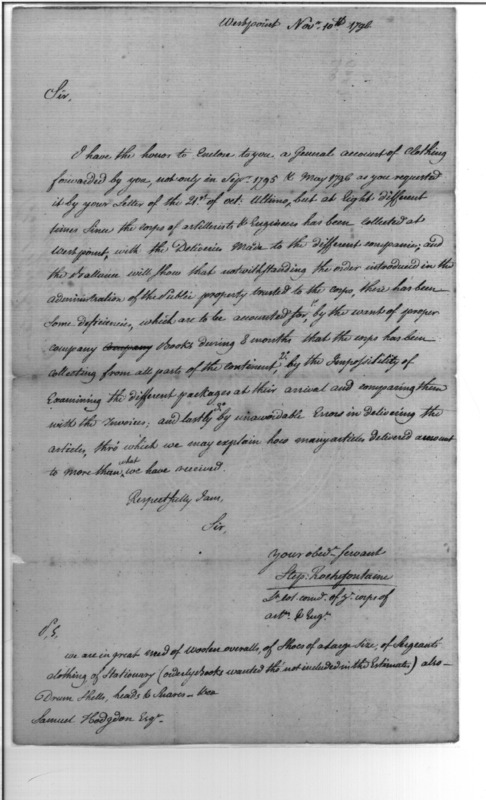 Westpoint Novr. 10th 1796
Sir,
I have the honor to Enclose to you a General account of Clothing
forwarded by you, not only in Sepr. 1795 & May 1796 as you requested
it by your Letter of the 21st of oct. Ultimo, but at Eight different
times Since the corps of artillerists & Engineers has been collected at
Westpoint, with the Deliveries Made to the different companies, and
the Ballance will Show that notwithstanding the order introduced in the
administration of the Public property trusted to the corps, there has been
Some deficiencies, which are to be accounted for, 1st by the want of proper
company Company Books during 8 months that the corps has been
collecting from all parts of the continent, 2d. by the Impossibility of
Examining the different packages at their arrival and comparing them
with the Invoices; and lastly by unavoidable Errors in delivering the
articles, thro' which we may explain how many articles delivered amount
to more than what we have received.
Respectfully I am,
Sir,
your obedt. Servant
Step. Rochefontaine
Lt. Col. comdt. of ye. corps of
artts. & Engrs.
P.S.
we are in great need of woolen overalls, of Shoes of a large Size, of Sergeants
clothing of Stationary (orderly Books wanted tho' not included in the Estimate,) also
Drum Shells, heads & Snares
Samuel Hodgdon Esqr.